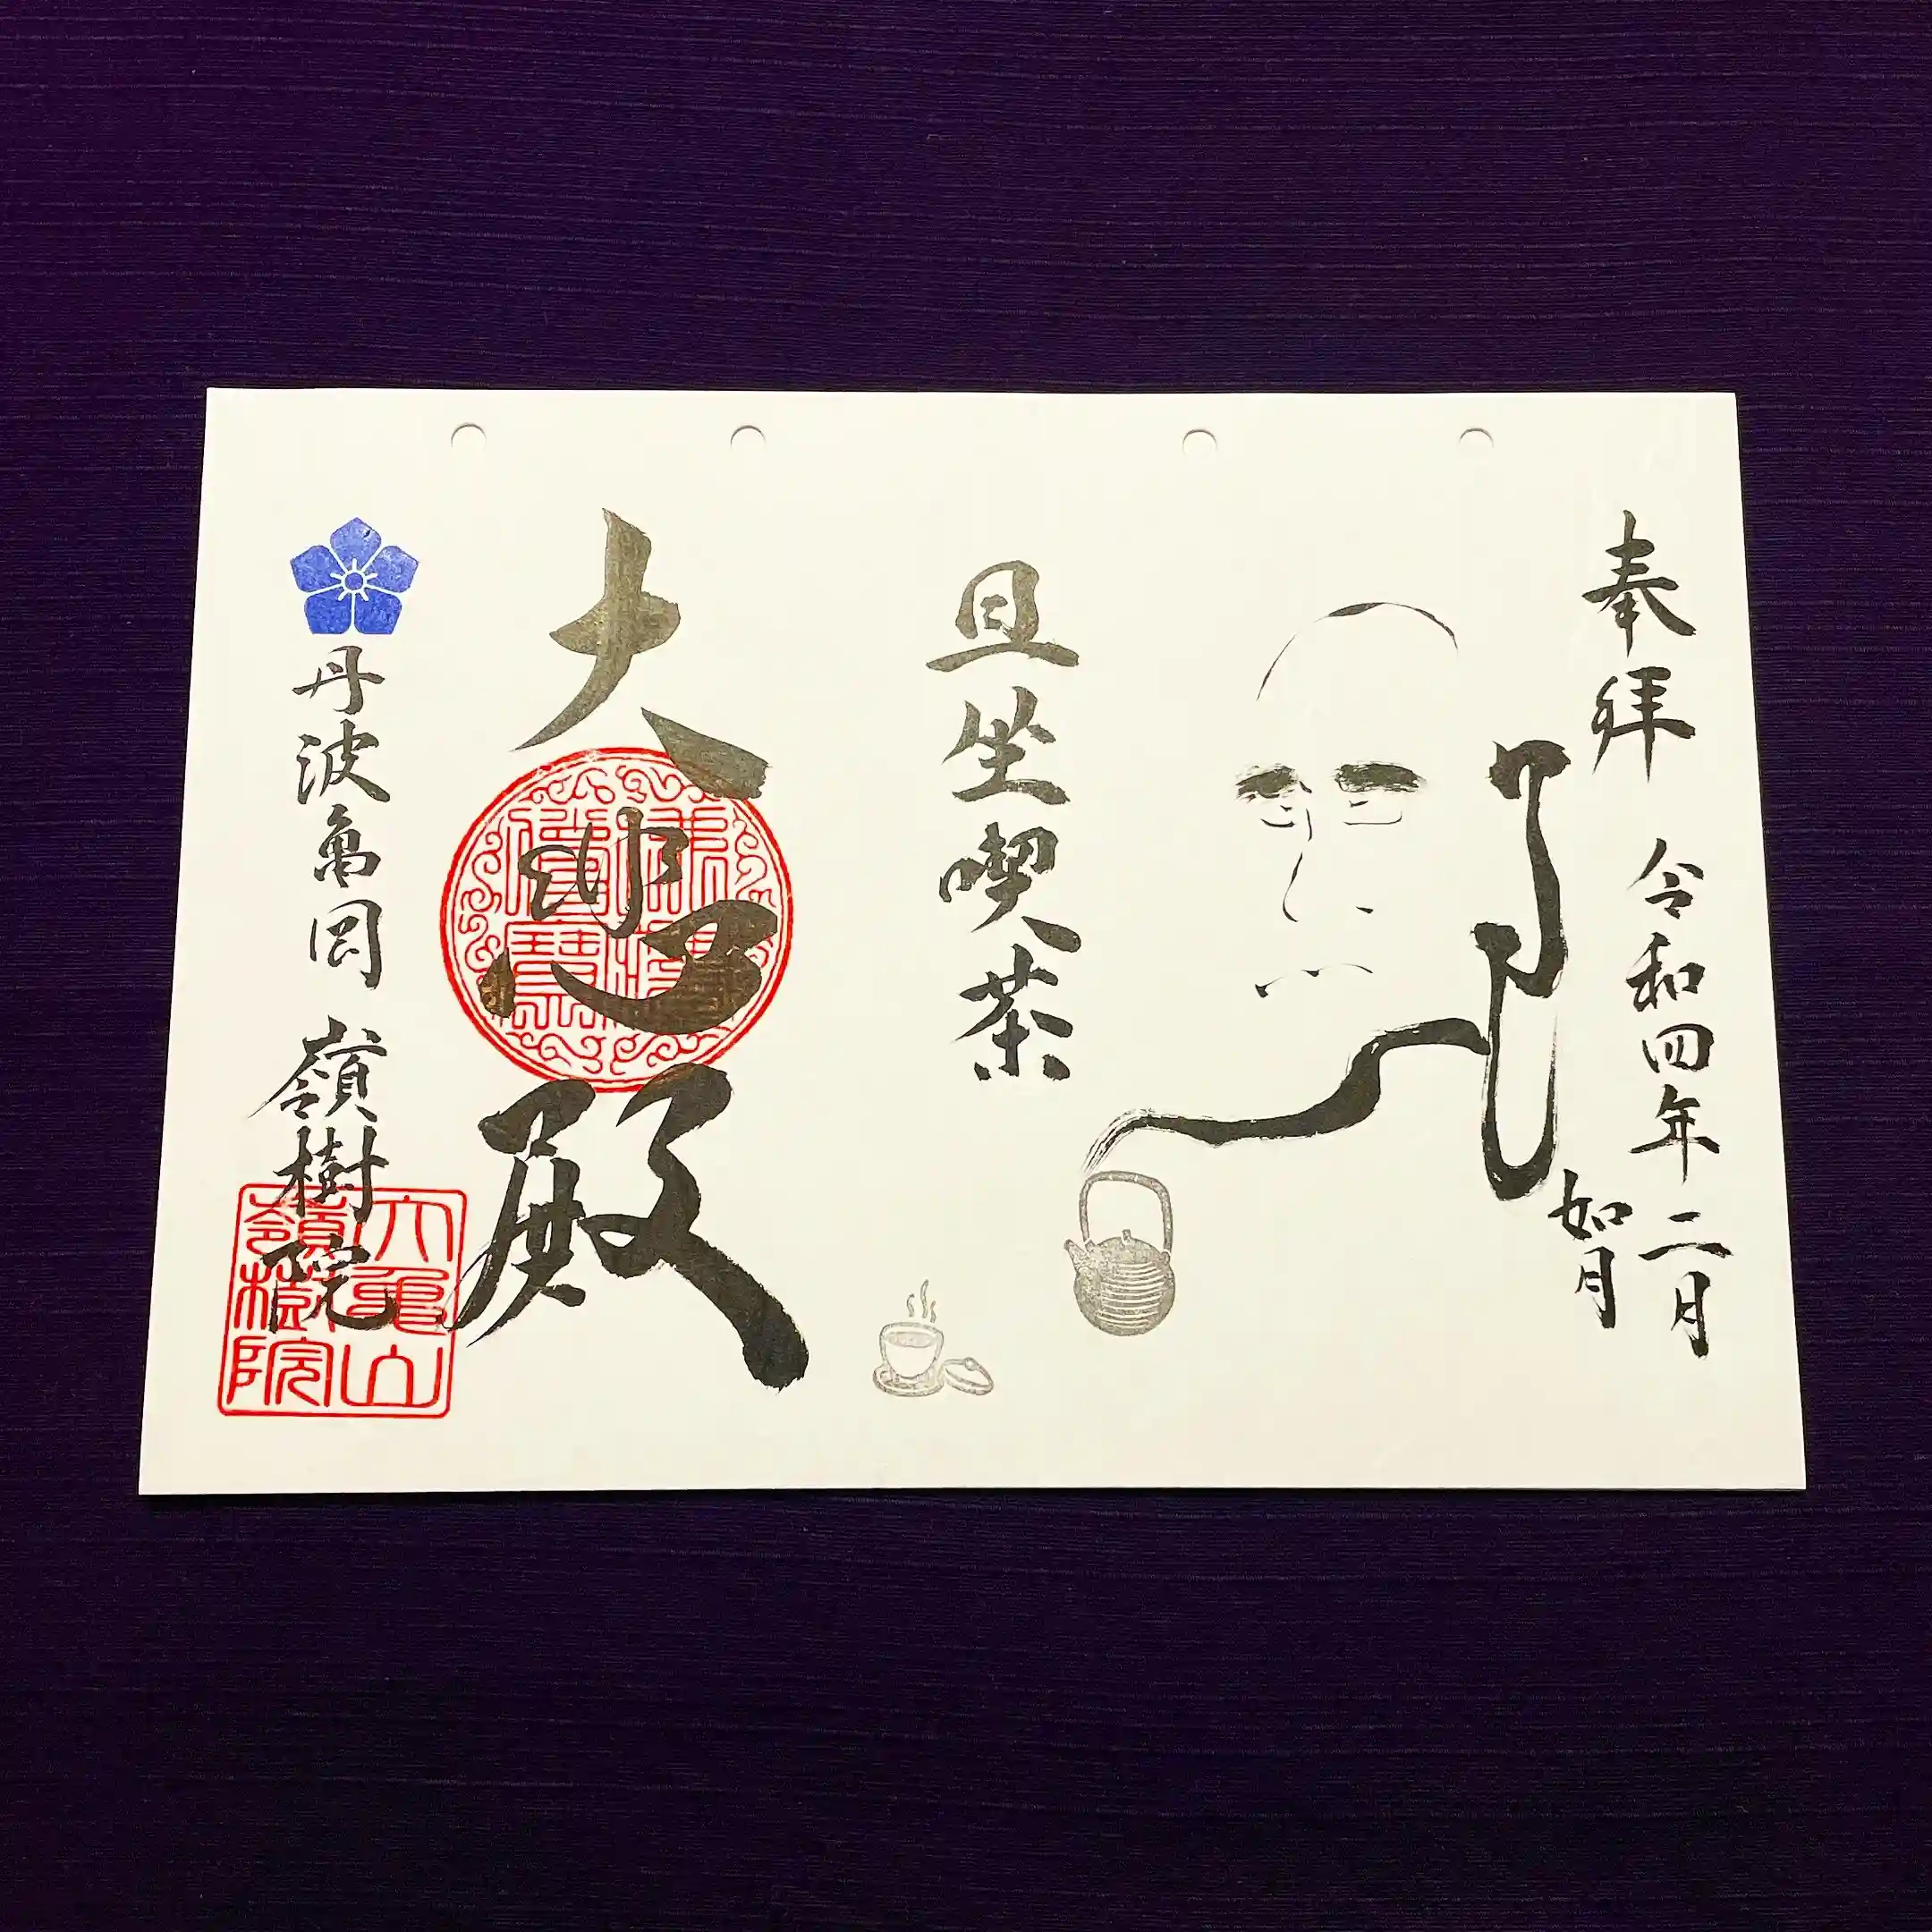 奉拝
令和四年二月
如月
旦坐喫茶
大悲殿
丹波亀岡 嶺樹院
大亀山
嶺樹院